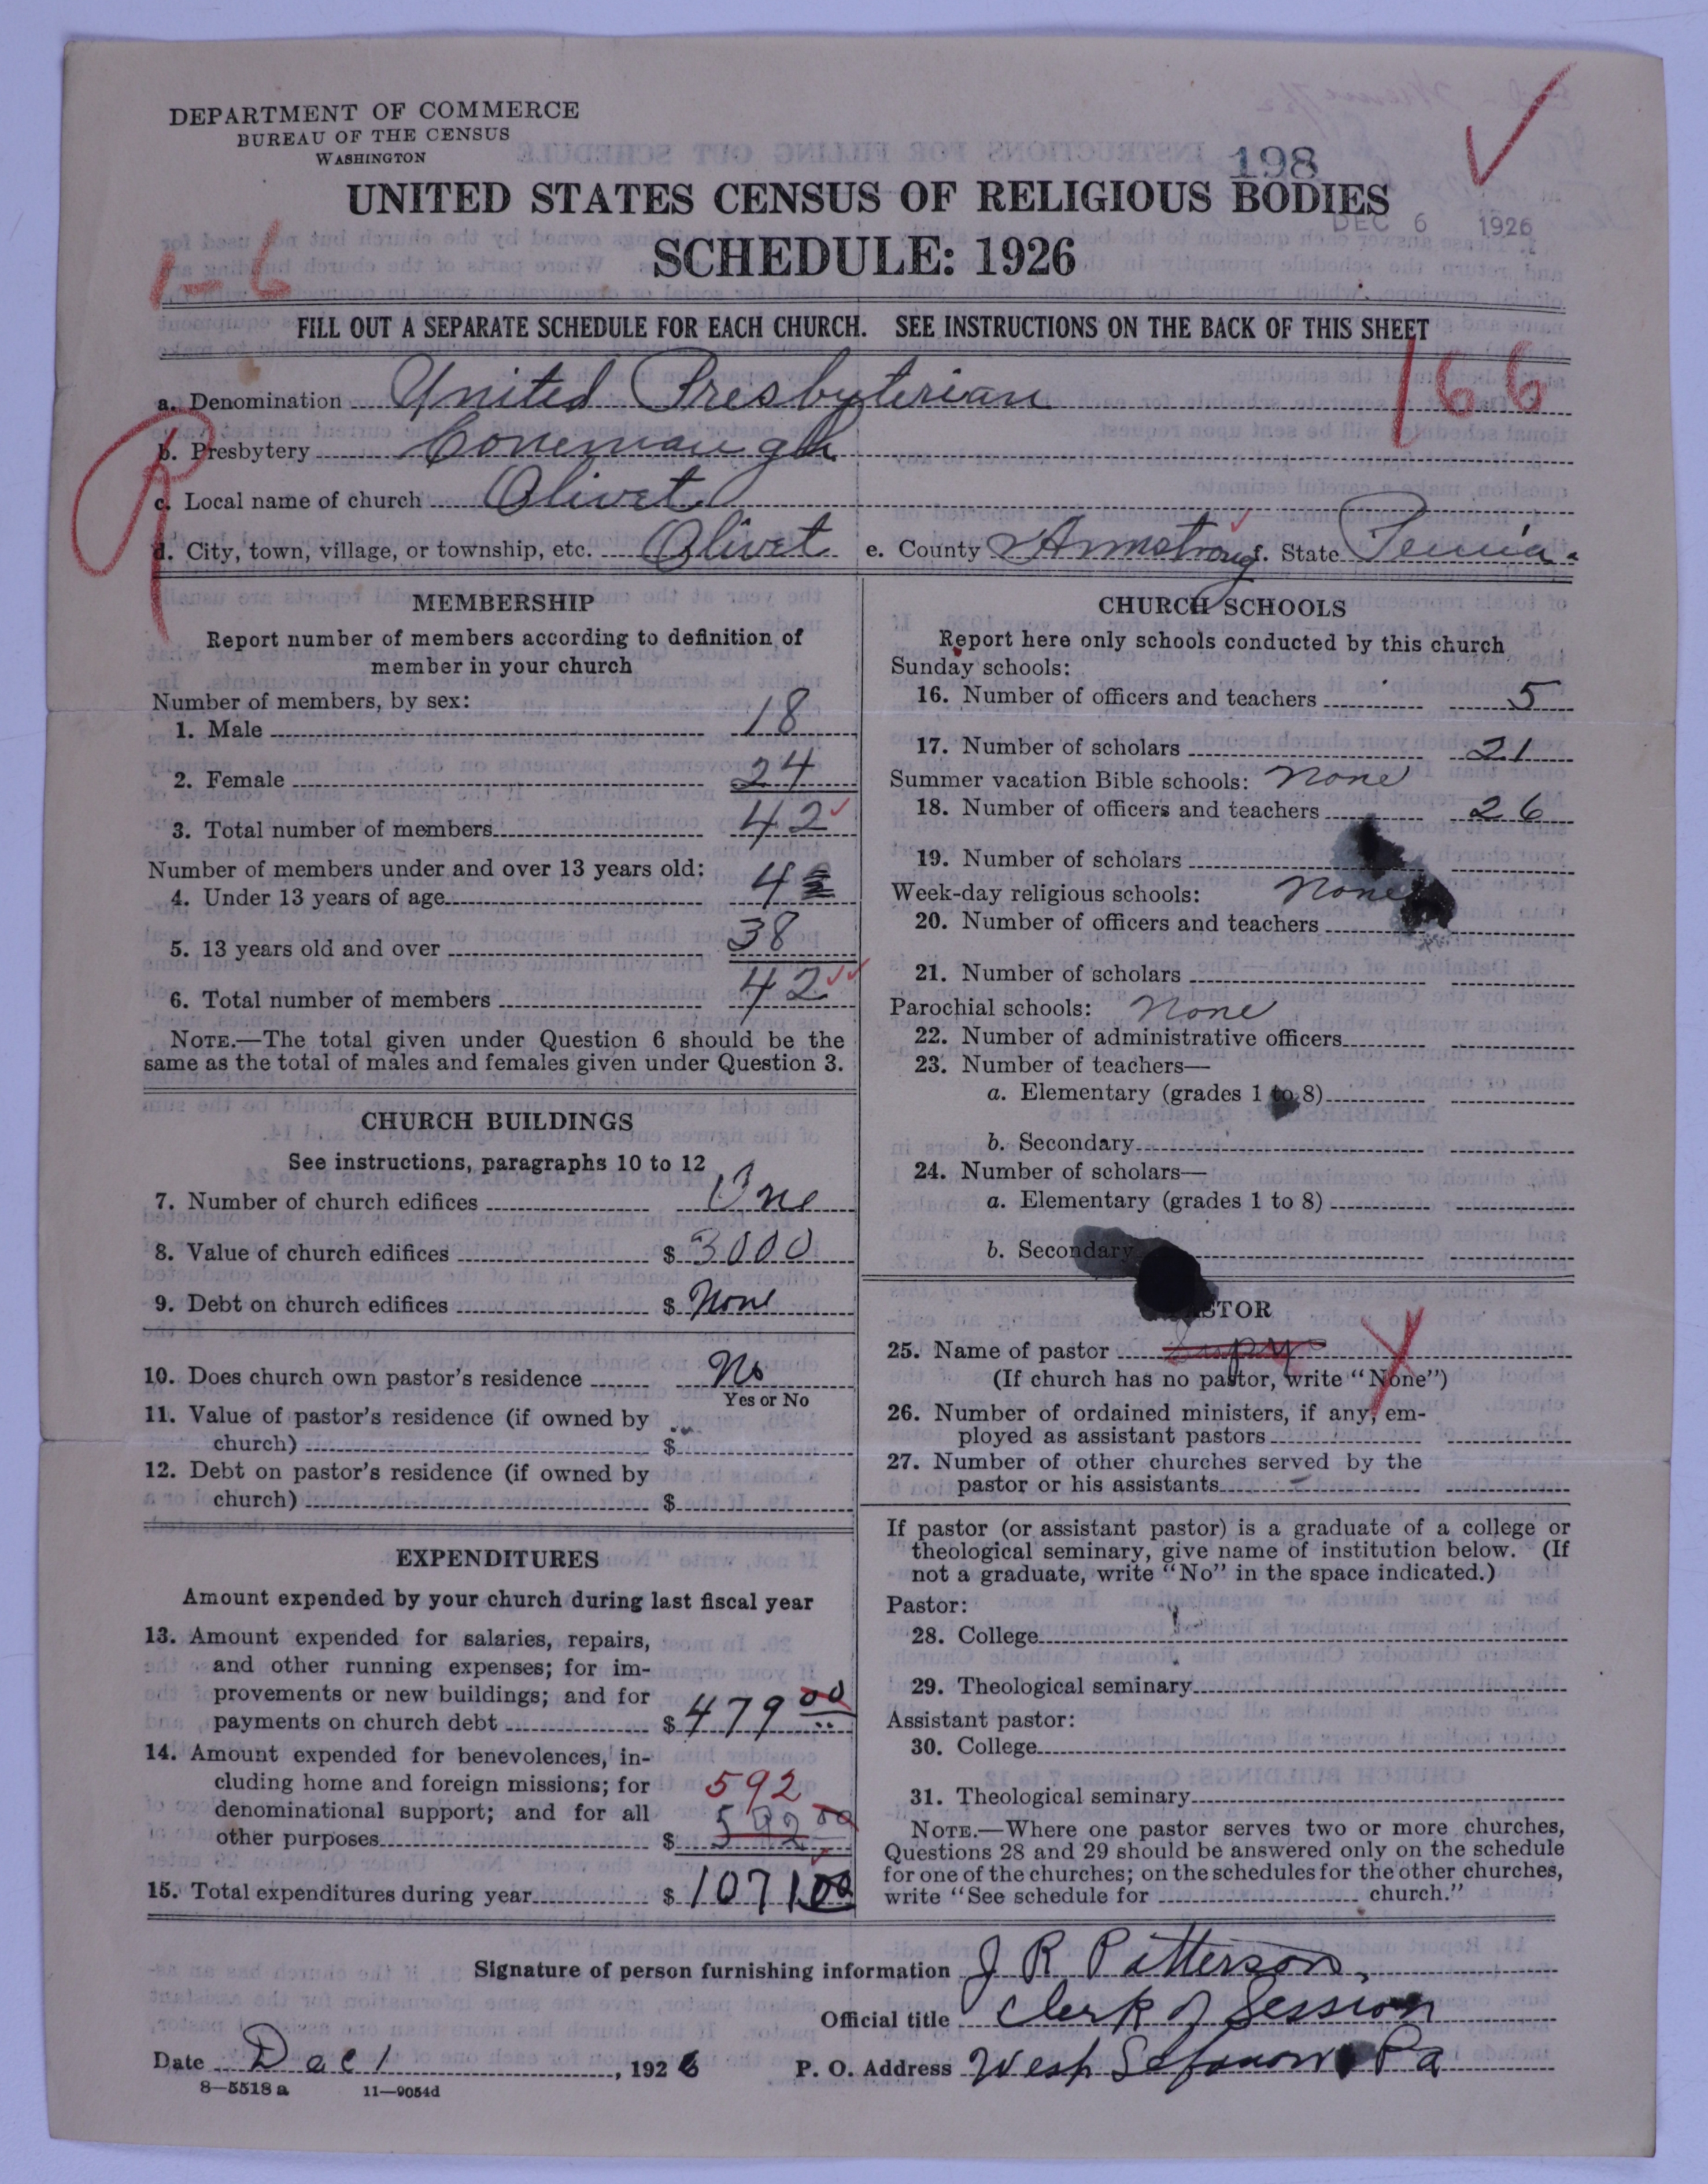 DEPARTMENT OF COMMERCE
BUREAU OF THE CENSUS
WASHINGTON
198
UNITED STATES CENSUS OF RELIGIOUS BODIES
DEC 6 1926
SCHEDULE: 1926
FILL OUT A SEPARATE SCHEDULE FOR EACH CHURCH. SEE INSTRUCTIONS ON THE BACK OF THIS SHEET
166
a. Denomination United Presbyterian
b. Presbytery Conemaugh
c. Local name of church Olivet
d. City, town, village, or township, etc. Olivet e. County Armstrong f. State Penna.
MEMBERSHIP
Report number of members according to definition of
member in your church
Number of members, by sex:
1. Male 18
2. Female 24
3. Total number of members 42
Number of members under and over 13 years old:
4. Under 13 years of age 4
5. 13 years old and over 38
6. Total number of members 42
NOTE.—The total given under Question 6 should be the
same as the total of males and females given under Question 3.
CHURCH BUILDINGS
See instructions, paragraphs 10 to 12
7. Number of church edifices One
8. Value of church edifices $ 3000
9. Debt on church edifices $ None
10. Does church own pastor's residence No
Yes or No
11. Value of pastor's residence (if owned by
church) $
12. Debt on pastor's residence (if owned by
church) $
EXPENDITURES
Amount expended by your church during last fiscal year
13. Amount expended for salaries, repairs,
and other running expenses; for im-
provements or new buildings; and for
payments on church debt $ 479 00
14. Amount expended for benevolences, in-
cluding home and foreign missions; for 592
denominational support; and for all
other purposes $ 592 00
15. Total expenditures during year $ 1071 00
CHURCH SCHOOLS
Report here only schools conducted by this church
Sunday schools:
16. Number of officers and teachers 5
17. Number of scholars 21
Summer vacation Bible schools: None
18. Number of officers and teachers 26
19. Number of scholars
Week-day religious schools: None
20. Number of officers and teachers
21. Number of scholars
Parochial schools: None
22. Number of administrative officers
23. Number of teachers—
a. Elementary (grades 1 to 8)
b. Secondary
24. Number of scholars—
a. Elementary (grades 1 to 8)
b. Secondary
PASTOR
25. Name of pastor
(If church has no pastor, write "None")
26. Number of ordained ministers, if any, em-
ployed as assistant pastors
27. Number of other churches served by the
pastor or his assistants
If pastor (or assistant pastor) is a graduate of a college or
theological seminary, give name of institution below. (If
not a graduate, write "No" in the space indicated.)
Pastor:
28. College
29. Theological seminary
Assistant pastor:
30. College
31. Theological seminary
NOTE.—Where one pastor serves two or more churches,
Questions 28 and 29 should be answered only on the schedule
for one of the churches; on the schedules for the other churches,
write "See schedule for church."
Signature of person furnishing information J R Patterson,
Official title Clerk of Session
Date Dec 1, 1926 P. O. Address West Pa
8—5518 a 11—9054d